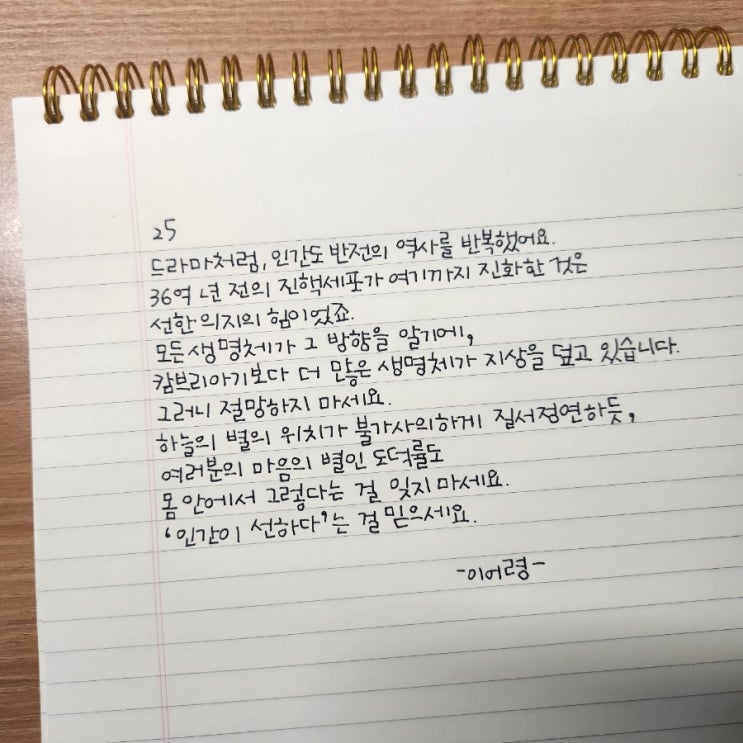 25
드라마처럼, 인간도 반전의 역사를 반복했어요.
36억 년 전의 진핵세포가 여기까지 진화한 것은
선한 의지의 힘이었죠.
모든 생명체가 그 방향을 알기에,
캄브리아기보다 더 많은 생명체가 지상을 덮고 있습니다.
그러니 절망하지 마세요.
하늘의 별의 위치가 불가사의하게 질서정연하듯,
여러분의 마음의 별인 도덕률도
몸 안에서 그렇다는 걸 잊지 마세요.
'인간이 선하다'는 걸 믿으세요.
-이어령-